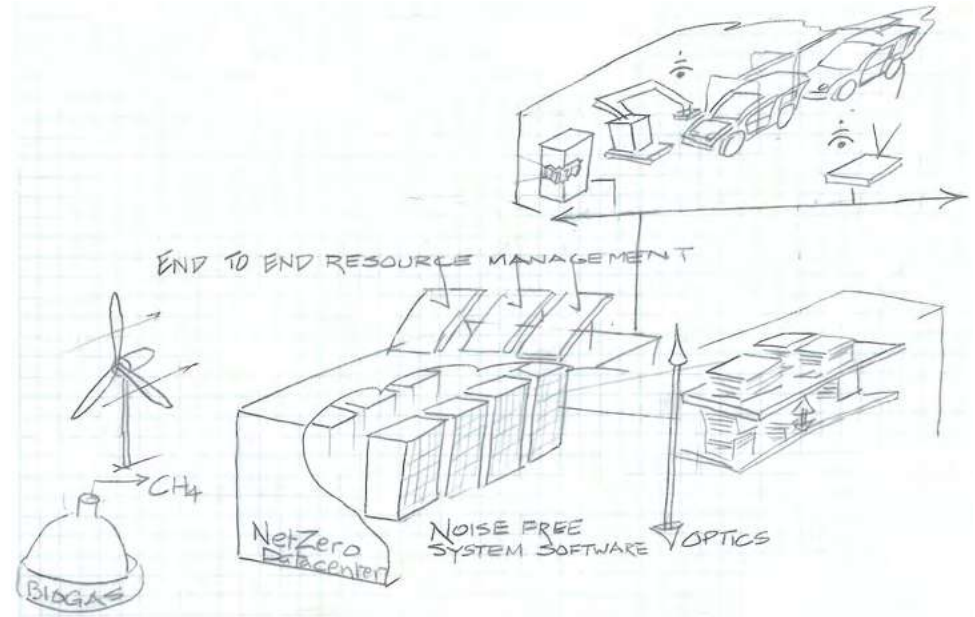 END TO END RESOURCE MANAGEMENT
CH4
BIOGAS
NetZero
Datacenter
NOISE FREE
SYSTEM SOFTWARE
OPTICS